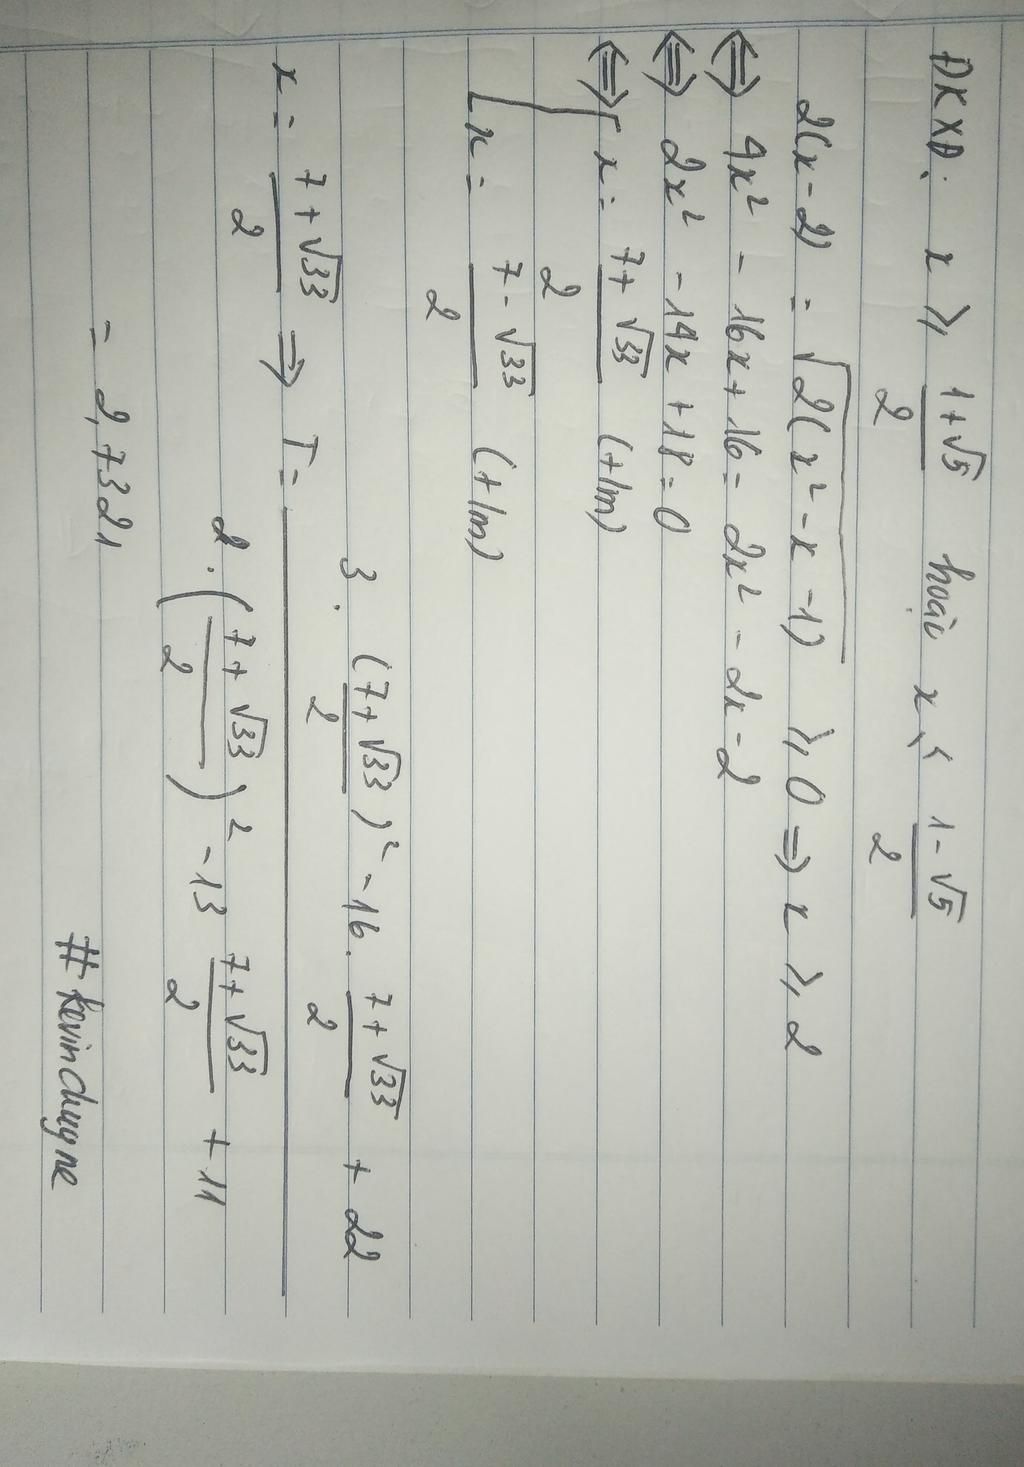 ĐKXĐ: x ≥ (1+√5)/2 hoặc x ≤ (1-√5)/2
2(x-2) = √(2(x²-x-1)) ≥ 0 ⇒ x ≥ 2
⇔ 4x² - 16x + 16 = 2x² - 2x - 2
⇔ 2x² - 14x + 18 = 0
⇔ [ x = (7+√33)/2 (t/m)
[ x = (7-√33)/2 (t/m)
x = (7+√33)/2 ⇒ T = 3.((7+√33)/2)² - 16.(7+√33)/2 + 22
2.((7+√33)/2)² - 13 (7+√33)/2 + 11
= 2,7321
# Kevinduyne